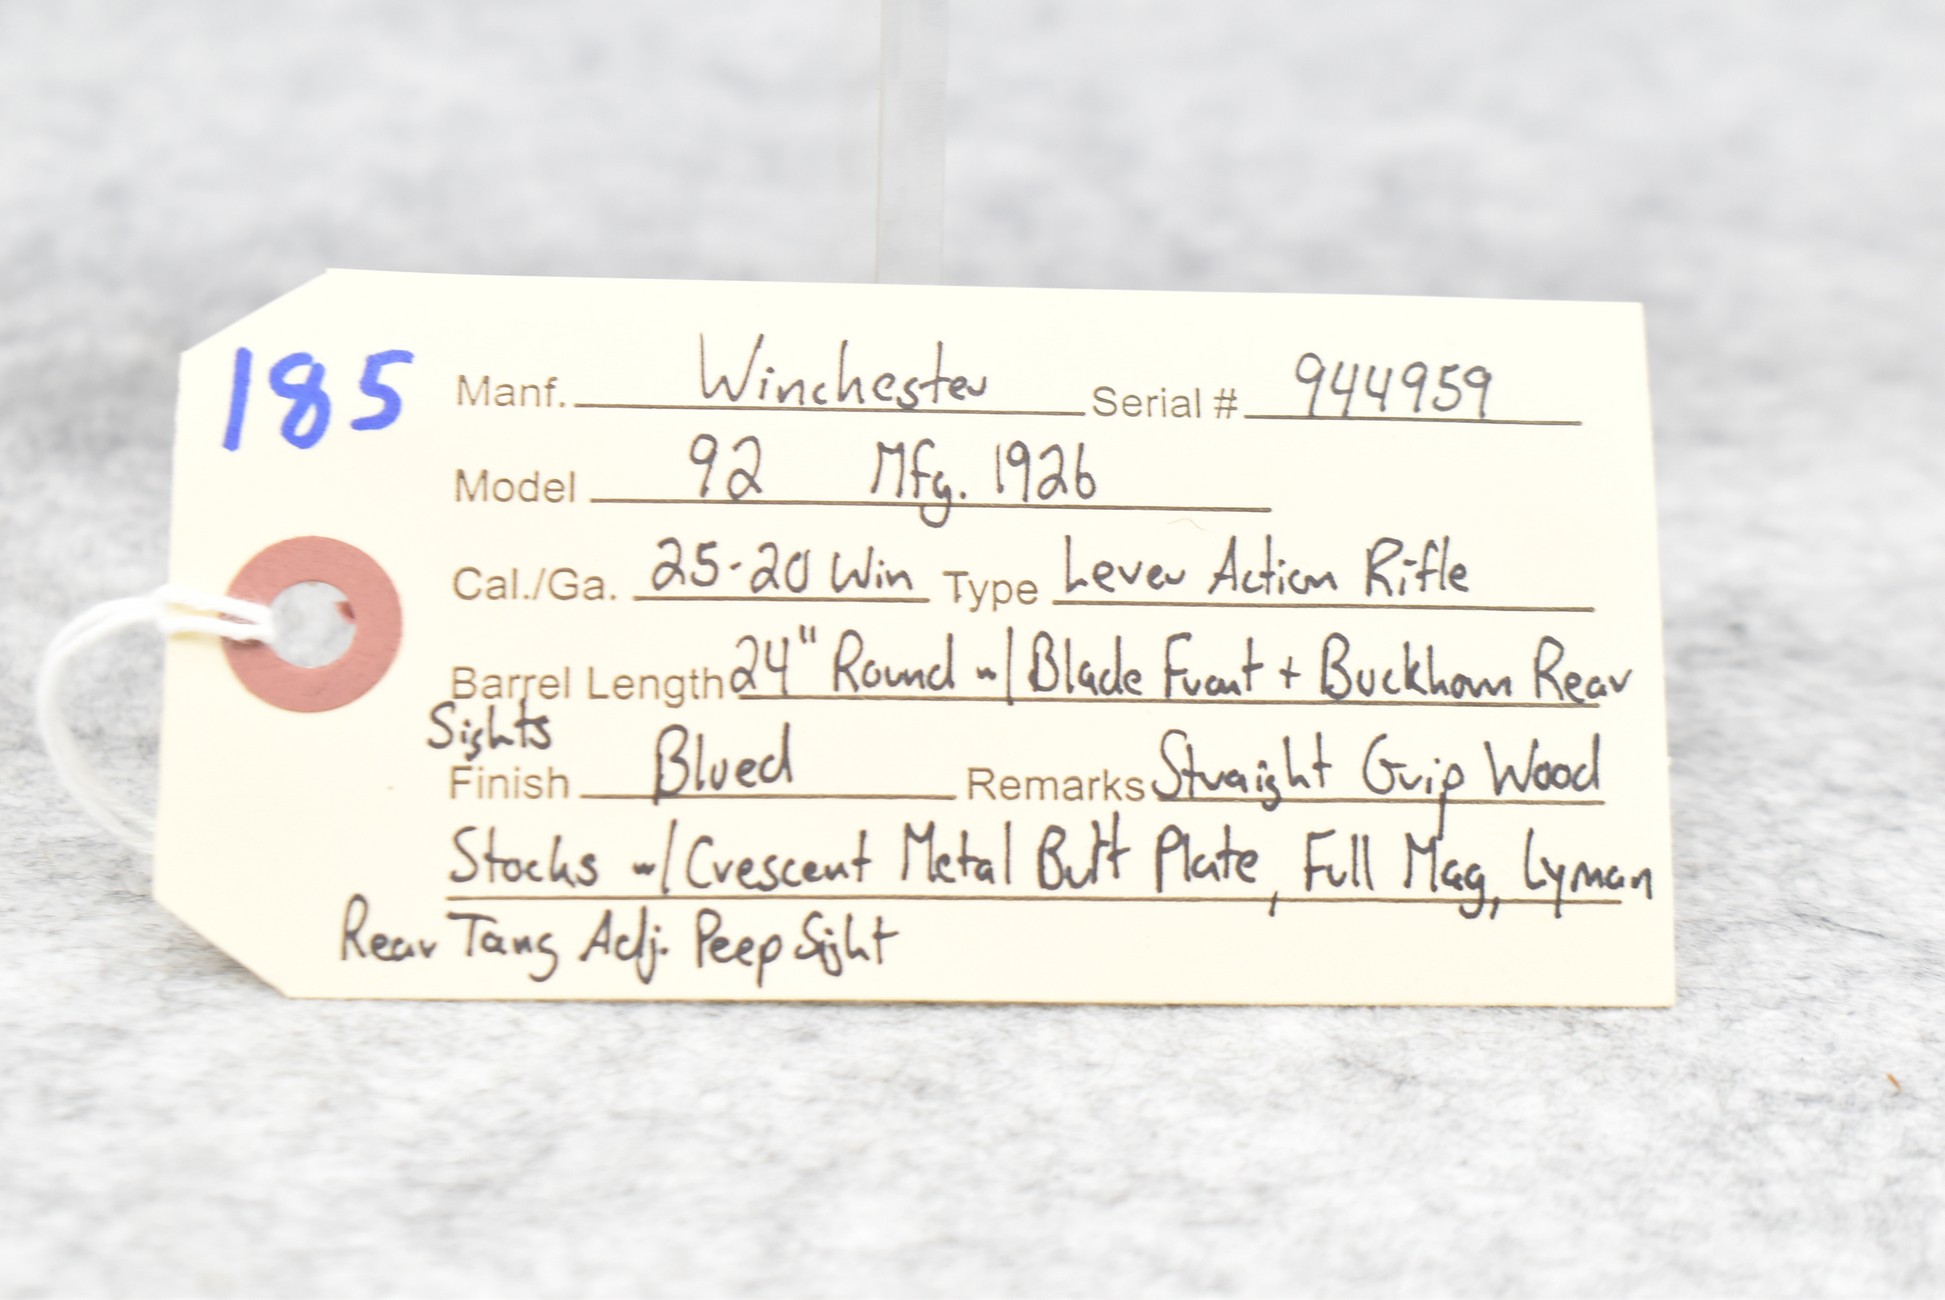 185
Manf. Winchester Serial # 944959
Model 92 Mfg. 1926
Cal./Ga. 25-20 Win Type Lever Action Rifle
Barrel Length 24" Round w/ Blade Front + Buckhorn Rear
Sights
Finish Blued Remarks Straight Grip Wood
Stocks w/ Crescent Metal Butt Plate, Full Mag, Lyman
Rear Tang Adj. Peep Sight